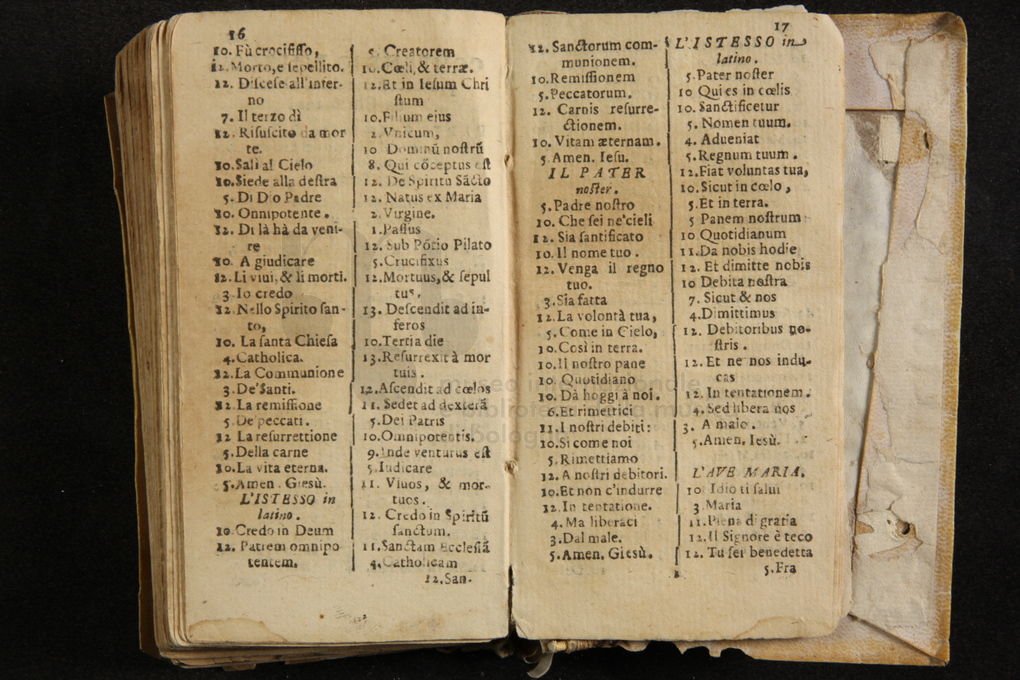 16
10. Fù crocifisso,
12. Morto, e sepellito.
12. Discese all'infer-
no
7. Il terzo dì
12. Risuscitò da mor
te.
10. Salì al Cielo
10. Siede alla destra
5. Di Dio Padre
10. Onnipotente.
12. Di là hà da veni-
re
10. A giudicare
12. Li viui, & li morti.
3 Io credo
12. Nello Spirito san-
to,
10. La santa Chiesa
4. Catholica.
12. La Communione
3. De' Santi.
12. La remissione
5. De peccati.
12 La resurrettione
5. Della carne
10. La vita eterna.
5. Amen. Giesù.
L'ISTESSO in
latino.
10. Credo in Deum
12. Patrem omnipo
tentem.
5. Creatorem
10. Cœli, & terræ.
12. Et in Iesum Chri
stum
10. Filium eius
2. Vnicum,
10 Dominū nostrū
8. Qui cōceptus est
12. De Spiritu Sācto
12. Natus ex Maria
2. Virgine.
1. Passus
12. Sub Pōtio Pilato
5. Crucifixus
12. Mortuus, & sepul
tus.
13. Descendit ad in-
feros
10. Tertia die
13. Resurrexit à mor
tuis.
12. Ascendit ad cœlos
11. Sedet ad dexterā
5. Dei Patris
10. Omnipotentis.
9. Inde venturus est
5. Iudicare
11. Viuos, & mor-
tuos.
12. Credo in Spiritū
sanctum.
11. Sanctam Ecclesiā
4. Catholicam
12. San-
17
12. Sanctorum com-
munionem.
10. Remissionem
5. Peccatorum.
12. Carnis resurre-
ctionem.
10. Vitam æternam.
5. Amen. Iesu.
IL PATER
noster.
5. Padre nostro
10. Che sei ne' cieli
12. Sia santificato
10. Il nome tuo.
12. Venga il regno
tuo.
3. Sia fatta
12. La volontà tua,
5. Come in Cielo,
10. Così in terra.
10. Il nostro pane
10. Quotidiano
10. Dà hoggi à noi.
6. Et rimettici
11. I nostri debiti:
10. Si come noi
5. Rimettiamo
12. A nostri debitori.
10. Et non c'indurre
12. In tentatione.
4. Ma liberaci
3. Dal male.
5. Amen. Giesù.
L'ISTESSO in
latino.
5. Pater noster
10 Qui es in cœlis
10. Sanctificetur
5. Nomen tuum.
4. Adueniat
5. Regnum tuum.
12. Fiat voluntas tua,
10. Sicut in cœlo,
5. Et in terra.
5 Panem nostrum
10 Quotidianum
11. Da nobis hodie
12. Et dimitte nobis
10 Debita nostra
7. Sicut & nos
4. Dimittimus
12. Debitoribus no-
stris.
12. Et ne nos indu-
cas
12. In tentationem.
4. Sed libera nos
3. A malo.
5. Amen. Iesù.
L'AVE MARIA.
10 Idio ti salui
3 Maria
11. Piena di gratia
12. Il Signore è teco
12. Tu sei benedetta
5. Fra